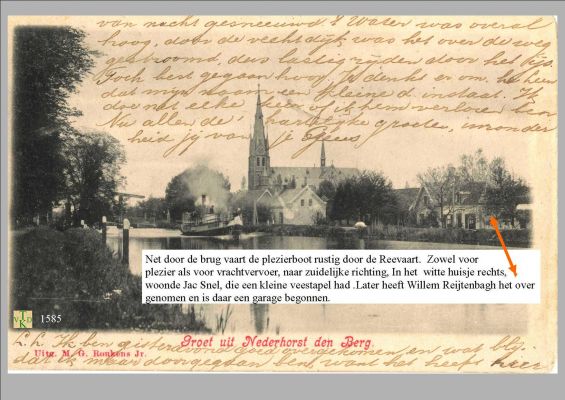 van nacht gesneeuwd & Water was overal
hoog, door de vechtdijk was het over de weg
gestroomd, dus lastig rijden door het ijs.
Toch best gegaan hoor. Ik denk er om, he hoor
dat mijn naam een kleine d. instaat. Ik
doe net elke keer of ik hem verloren ben
Nu allen de hartelijke groeten,
heid jij van je
Net door de brug vaart de plezierboot rustig door de Reevaart. Zowel voor
plezier als voor vrachtvervoer, naar zuidelijke richting, In het witte huisje rechts,
woonde Jac Snel, die een kleine veestapel had .Later heeft Willem Reijtenbagh het over
genomen en is daar een garage begonnen.
1585
Groet uit Nederhorst den Berg.
L.L. Ik ben gisteravond goed overgekomen en was blij
Uitg. M. G. Ronkens Jr.
dat ik maar doorgegaan ben, want het heeft heer